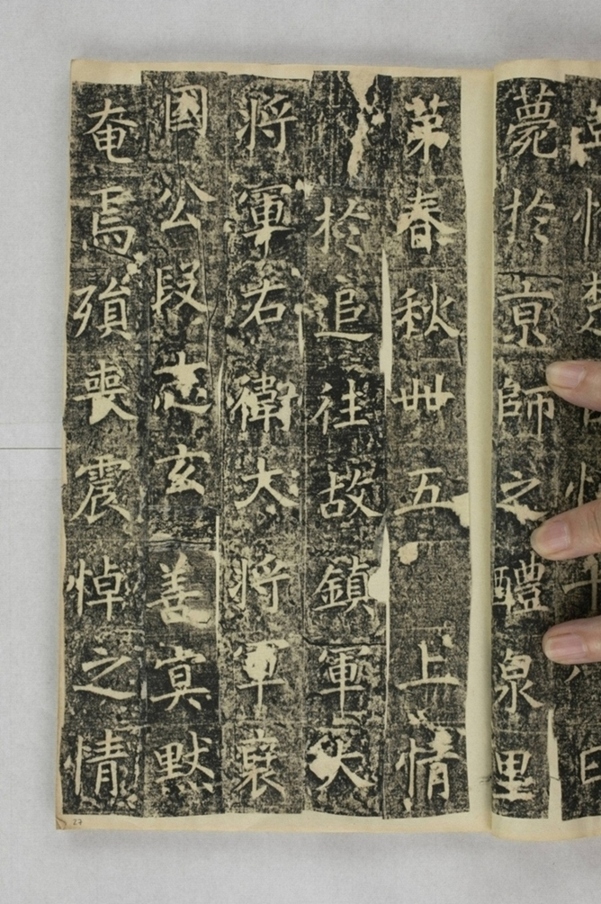 薨於京師之醴泉里
第春秋卌五上情
於追往故鎮軍大
將軍右衛大將軍襃
國公段志玄善冥默
奄焉殞喪震悼之情
27